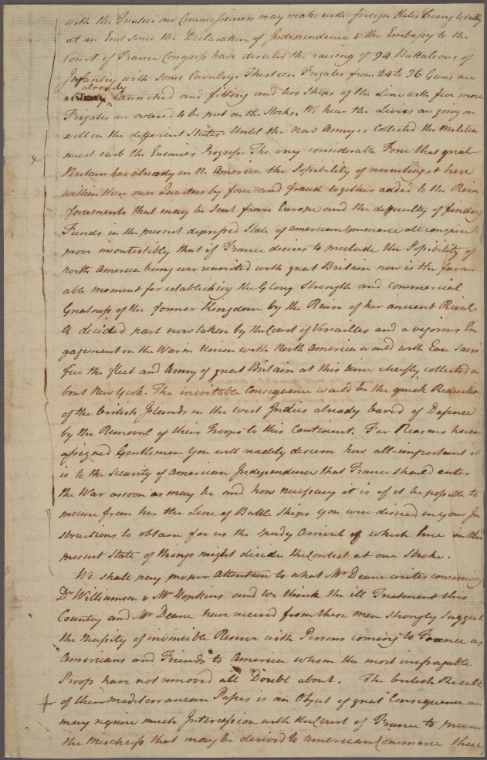 with the Treaties our Commissioners may make with foreign States being totally
at an End since the Declaration of Independence & the Embassy to the
Court of France Congress have directed the raising of 94 Battalions of
Infantry with some Cavalry. Thirteen Frigates from 24 to 36 Guns are
already launched and fitting and two Ships of the Line with five more
Frigates are ordered to be put on the Stocks. We hear the Levies are going on
well in the different States. Until the new Army is collected the Militia
must curb the Enemies Progress. The very considerable Force that great
Britain has already in N. America the Possibility of recruiting it here
within their own Quarters by force and fraud together added to the Rein
forcements that may be Sent from Europe and the difficulty of finding
Funds in the present depressed State of american Commerce all conspire to
prove incontestibly that if France desires to preclude the Possibility of
north America being ever reunited with great Britain now is the favor
able moment for establishing the Glory Strength and commercial
Greatness of the former Kingdom by the Ruin of her ancient Rival
A decided part now taken by the Court of Versailles and a vigorous En
gagement in the War in Union with North America would with Ease sacri
fice the fleet and Army of great Britain at this time chiefly collected a
bout New York. The inevitable Consequence would be the quick Reduction
of the british Islands in the west Indies already bared of Defence
by the Removal of their Troops to this Continent. For Reasons herein
assigned Gentlemen You will readily discern how all-important it
is to the Security of American Independence that France should enter
the War as soon as may be and how necessary it is if it be possible to
procure from her the Line of Battle Ships you were desired in your In
structions to obtain for us the speedy arrival of which here in the
present State of things might decide the Contest at one Stroke.
We shall pay proper Attention to what Mr Deane writes concerning
Dr Williamson & Mr Hopkins and we think the ill Treatment this
Country and Mr Deane have received from these men strongly suggest
the necessity of invincible Reserve with Persons coming to France as
Americans and Friends to America whom the most irrefragable
Proofs have not removed all Doubt about. The british Recall
of their mediterranean Passes is an Object of great Consequence and
may require much Intercession with the Court of France to prevent
the mischiefs that may be derived to american Commerce there